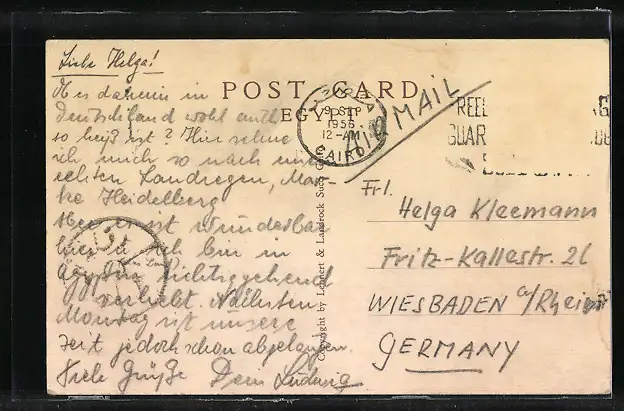 Liebe Helga!
POST CARD
EGYPT
9 SEP
1956
12-AM
CAIRO
AIR MAIL
Ob es daheim in
Deutschland wohl auch
so heiß ist? Hier sehne
ich mich so nach
echten Landregen, Mar-
ke Heidelberg
es ist wunderbar
hier u. ich bin in
Ägypten richtiggehend
verliebt. Nächsten
Montag ist unsere
Zeit jedoch schon abgelaufen.
Viele Grüße Dein Ludwig
Copyright by Lehnert & Landrock Succ. Cairo
Frl.
Helga Kleemann
Fritz-Kallestr. 26
WIESBADEN a/Rhein
GERMANY